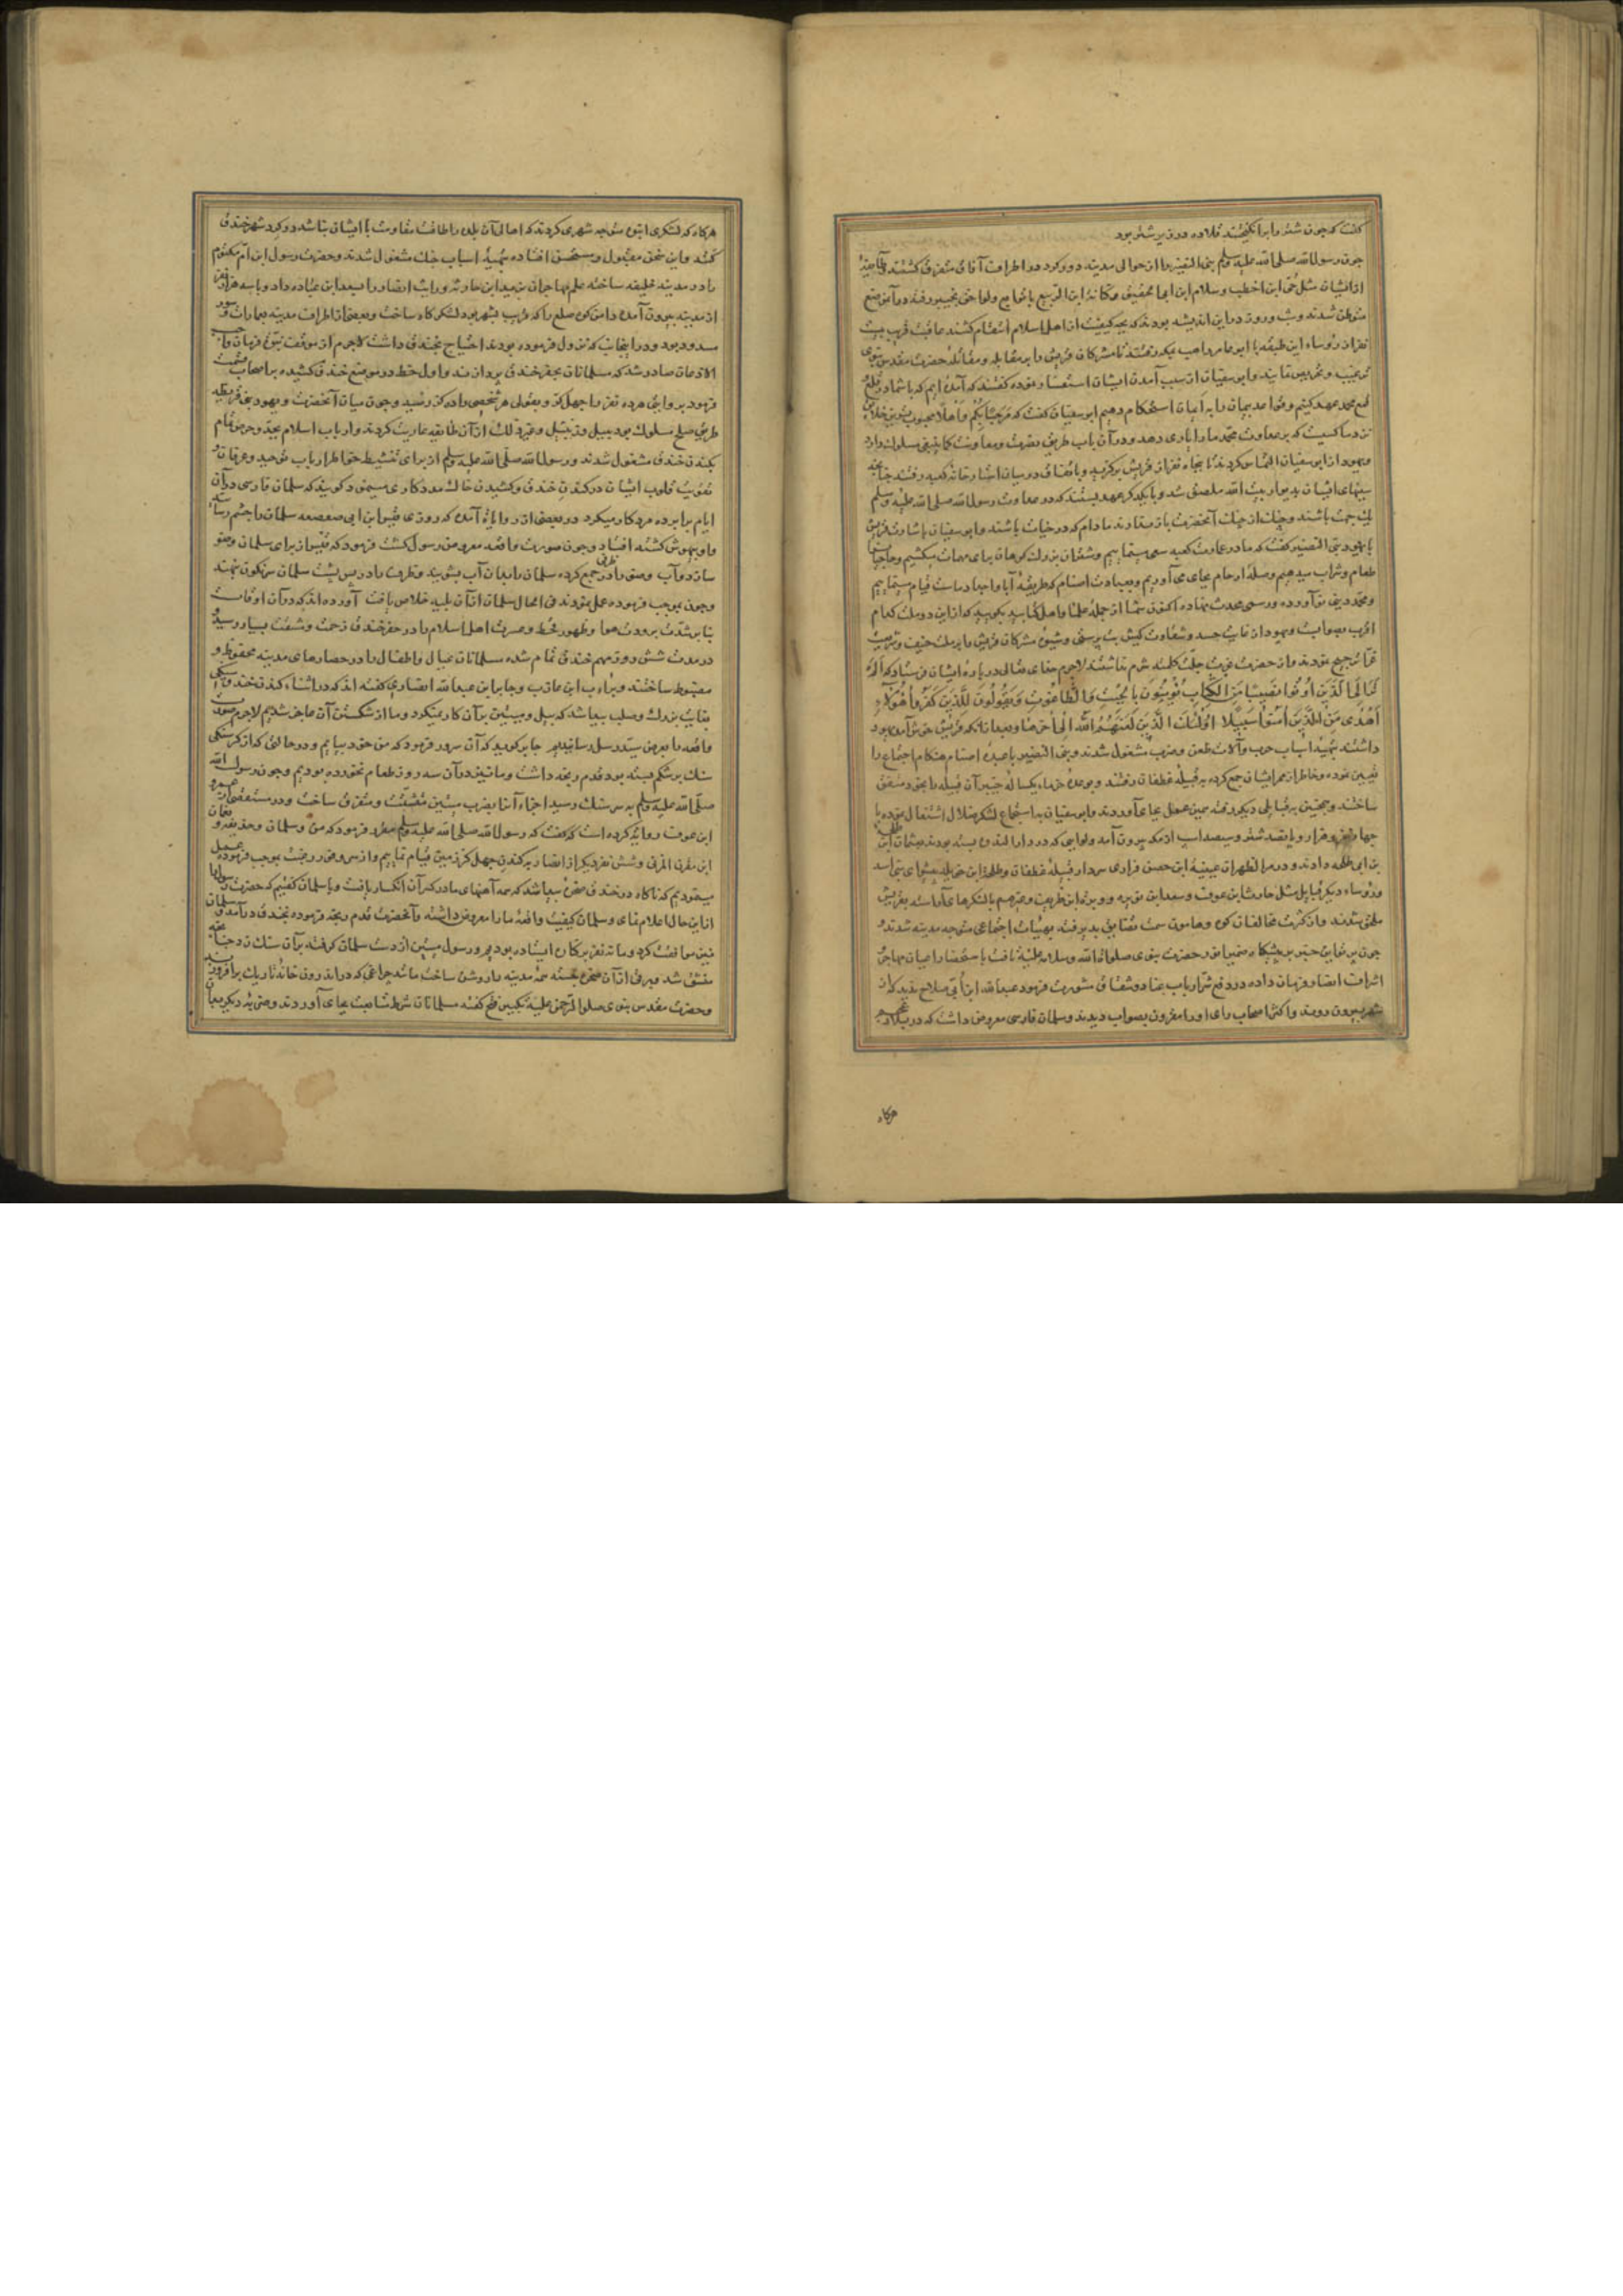 گفت که چون شتر را برانگیختند قلاده در زیر شتر بود
چون رسول الله صلی الله علیه وسلم بنی النضیر را از حوالی مدینه دور کرد در اطراف آفاق متفرق گشتند و طایفه
از ایشان مثل حی ابن اخطب و سلام ابن ابی الحقیق وکنانة ابن الربیع با توابع ولواحق بخیبر رفته در آن موضع
متوطن شدند وشب وروز در این اندیشه بودند که بچه کیفیت از اهل اسلام انتقام کشند عاقبت قریب بیست
نفر از رؤساء این طبقه با ابو عامر راهب بمکه رفتند تا مشرکان قریش را بر مقابله ومقاتله حضرت مقدس نبوی
ترغیب وتحریص نمایند وابو سفیان از سبب آمدن ایشان استفسار نموده گفتند که آمده ایم که با شما در قلع
قمع محمد عهد کنیم وقواعد پیمان را به ایمان استحکام دهیم ابو سفیان گفت که مرحبا بکم واهلا محبوب ترین خلایق
نزد ما کسیست که بر معاوت محمد ما را یاری دهد ودر آن باب طریق نصرت ومعاونت کما ینبغی مسلوک دارد
ویهود از ابو سفیان التماس کردند تا پنجاه نفر از قریش برگزید وباتفاق در میان استار خانه کعبه رفتند چنانچه
سینهای ایشان بدیوار بیت الله ملصق شد وبا یکدیگر عهد بستند که در عداوت رسول الله صلی الله علیه وسلم
یک جهت باشند و از جنگ آنحضرت باز نمانند مادام که در حیات باشند وابو سفیان باشارت قریش
با یهود بنی النضیر گفت که ما در عمارت کعبه سعی مینماییم وشتران بزرک کوهان برای مهمان میکشیم وحاجیان را
طعام وشراب میدهیم وصلهٔ ارحام بجای می آوریم وبعبادت اصنام که طریقهٔ آبا واجداد ماست قیام مینماییم
ومحمد دینی نو آورده ورسمی محدث نهاده اکنون شما از جملهٔ علما واهل کتابید بگویید که از این دو ملت کدام
اقرب بصوابست ویهود از غایت حسد وشقاوت کیش بت پرستی وشیوهٔ مشرکان قریش را بر ملت حنیف وشریعت
غرا ترجیح نمودند واز حضرت عزت جلت کلمته شرم نداشتند لاجرم خدای تعالی در باره ایشان فرستاد که الم
تر الی الذین اوتوا نصیبا من الکتاب یؤمنون بالجبت والطاغوت ویقولون للذین کفروا هؤلاء
اهدی من الذین آمنوا سبیلا اولئک الذین لعنهم الله الی آخرها وبعد از آنکه قریش
داشته بتهیهٔ اسباب حرب وآلات طعن وضرب مشغول شدند وبنی النضیر با عبدهٔ اصنام هنکام اجتماع را
تعیین نموده وخاطر از ممر ایشان جمع کرده بر قبیلهٔ غطفان رفتند وبوعده خرمای یکسالهٔ خیبر آن قبیله را متفق
ساختند وهمچنین بر قبایل دیکر رفته همین عمل بجای آوردند وابو سفیان به استجماع لشکر ضلال اشتغال نموده با
چهار هزار مرد وسیصد اسب از مکه بیرون آمد ولوایی که در دار الندوه بسته بودند بعثمان ابن طلحه
بن ابی طلحه دادند ودر مر الظهران عیینة ابن حصن فزاری سردار قبیلهٔ غطفان وطلیحة ابن خویلد پیشوای بنی اسد
ورؤساء دیکر قبایل مثل حارث ابن عوف با لشکرهای آراسته بقریش
ملحق شدند واز کثرت مخالفان کوه وهامون سمت تضایق پذیرفته بهیات اجتماعی متوجه مدینه شدند و
چون پرتو این خبر بر پیشکاه ضمیر انور حضرت نبوی صلوات الله وسلامه علیه تافت باستحضار اعیان مهاجر و
اشراف انصار فرمان داده در دفع شر ارباب عناد وشقاق مشورت فرمود عبد الله ابن ابی صلاح ندید که از
شهر بیرون روند واکثر اصحاب رای او را مقرون بصواب دیدند وسلمان فارسی معروض داشت که در بلاد عجم
هرکاه
هرکاه که لشکری انبوه متوجه شهری کردند که اهالی آن بلده را طاقت مقاومت با ایشان نباشد در کرد شهر خندق
کنند واین سخن مقبول ومستحسن افتاده بتهیهٔ اسباب جنک مشغول شدند وحضرت رسول ابن ام مکتوم
را در مدینه خلیفه ساخته علم مهاجران بزید ابن حارثه ورایت انصار را بسعد ابن عباده داد وبا سه هزار نفر
از مدینه بیرون آمده دامن کوه سلع را که قریب بشهر بود لشکرکاه ساخت وبعضی از اطراف مدینه بعمارات وسور
مسدود بود ودر آنجانب که نزول فرموده بودند احتیاج بخندق داشت لاجرم از موقف نبوت فرمان واجب
الاذعان صادر شد که مسلمانان بحفر خندق پردازند واول خط در موضع خندق کشیده بر اصحاب قسمت
فرمود بروایتی هرده نفر را چهل کز وبقولی هر شخصی را ده کز رسید وچون میان آنحضرت ویهود بنی قریظه
طریق صلح مسلوک بود بیل وزنبیل وغیر ذلک از آن طایفه عاریت کردند وارباب اسلام بجد وجهد تمام
بکندن خندق مشغول شدند ورسول الله صلی الله علیه وسلم از برای تنشیط خواطر ارباب توحید وعرفان و
تقویت قلوب ایشان در کندن خندق وکشیدن خاک مددکاری مینمود کویند که سلمان فارسی در آن
ایام برابر ده مرد کار میکرد در بعضی از روایات آمده که روزی قیس ابن ابی صعصعه سلمان را چشم رسانید
واو بیهوش کشته افتاد وچون صورت واقعه معروض رسول کشت فرمود که قیس از برای سلمان وضو
سازد وآب وضو را در ظرفی جمع کرده سلمان را بدان آب بشویند وظرف را در پس پشت سلمان سرنکون نهند
وچون بموجب فرموده عمل نمودند فی الحال سلمان از آن بلیه خلاص یافت آورده اند که در آن اوقات
بنا بر شدت برودت هوا وظهور قحط وعسرت اهل اسلام را در حفر خندق زحمت ومشقت بسیار رسید و
در مدت شش روز مهم خندق تمام شده مسلمانان عیال واطفال را در حصارهای مدینه محفوظ و
مضبوط ساختند وبراء ابن عازب وجابر ابن عبد الله انصاری گفته اند که در اثناء کندن خندق سنکی
بغایت بزرک وصلب پیدا شد که بیل ومیتین بر آن کار نمیکرد وما از شکستن آن عاجز شدیم لاجرم صورت
واقعه را بعرض سید رسل رسانیدیم جابر کوید که آن سرور فرمود که من خود بیایم ودر حالتی که از کرسنکی
سنک بر شکم بسته بود قدم رنجه داشت وما نیز در آن سه روز طعام نخورده بودیم وچون رسول الله
صلی الله علیه وسلم بر سر سنک رسید اجزاء آنرا بضرب میتین متشتت ومتفرق ساخت ودر مستقصی از عمرو
ابن عوف روایة کرده است که گفت که رسول الله صلی الله علیه وسلم مقرر فرمود که من وسلمان وحذیفه ونعمان
ابن مقرن المزنی وشش نفر دیکر از انصار بر کندن چهل کز زمین قیام نماییم بموجب فرموده عمل
مینمودیم که ناکاه در خندق صخرهٔ پیدا شد که همه آهنهای ما در کسر آن انکسار یافت وبا سلمان گفتیم که حضرت رسول را
از این حال اعلام نمای وسلمان کیفیت واقعه ما را معروض داشته وآنحضرت قدم رنجه فرموده بخندق در آمد وسلمان
نیز موافقت کرد وما نه نفر بر کنار ایستاده بودیم ورسول میتین از دست سلمان گرفته بر آن سنک زد چنانچه
منشق شد وبرقی از آن صخره جسته همه مدینه را روشن ساخت مانند چراغی که در اندرون خانهٔ تاریک برافروزند
وحضرت مقدس نبوی صلوات الرحمن علیه تکبیر فتح گفته مسلمانان شرط متابعت بجای آوردند وضربهٔ دیکر بر آن